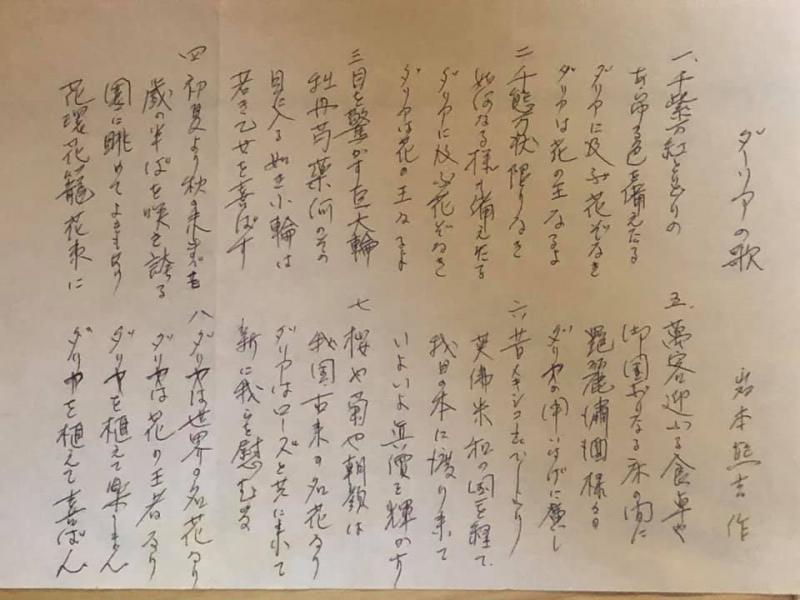 ダーリアの歌
岩本熊吉作
一、千紫万紅とりどりの
あらゆる色を備えたる
ダリヤに及ぶ花ぞなき
ダリヤは花の王なるよ
二 千態万状限りなき
如何なる様も備えたる
ダリヤに及ぶ花ぞなき
ダリヤは花の王なるよ
三 目を驚かす巨大輪
牡丹芍薬何のその
目に入る如き小輪は
若き乙女を喜ばす
四 初夏より秋の末までも
歳の半ばを咲き誇る
園に眺めてよきもあり
花環花籠花束に
五、萬客迎ふる食卓や
御国ぶりなる床の間に
艶麗瀟洒様々の
ダリヤの用いろげに廣し
六 昔メキシコ
英佛米和の国を経て
我日の本に渡り来て
いよいよ真價を輝かす
七 桜や菊や朝顔は
我国古来の名花なり
ダリヤはローズと共に来て
新に我らを慰むる
八 ダリヤは世界の名花なり
ダリヤは花の王者なり
ダリヤを植えて楽しまん
ダリヤを植えて喜ばん